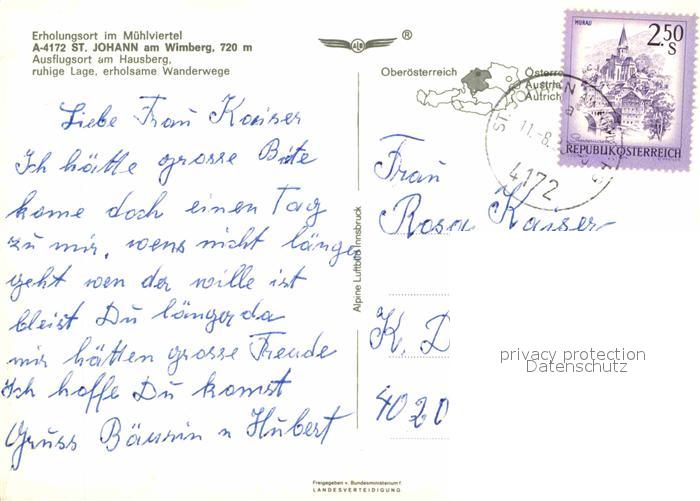 Erholungsort im Mühlviertel
A-4172 ST. JOHANN am Wimberg, 720 m
Ausflugsort am Hausberg,
ruhige Lage, erholsame Wanderwege
®
Oberösterreich
Österre
Austria
Autrich
MURAU
2.50
S
REPUBLIK ÖSTERREICH
ST. JOHANN AM
11.-8.
4172
Liebe Frau Kaiser
Ich hätte grosse Bitte
kome doch einen Tag
zu mir, wens nicht länger
geht wen der wille ist
bleist Du länger da
mir hätten grosse Freude
Ich hoffe Du komst
Gruss Bäurin u Hubert
Alpine Luftbild Innsbruck
Frau
Rosa Kaiser
K. D
4020
privacy protection
Datenschutz
Freigegeben v. Bundesministerium f.
LANDESVERTEIDIGUNG